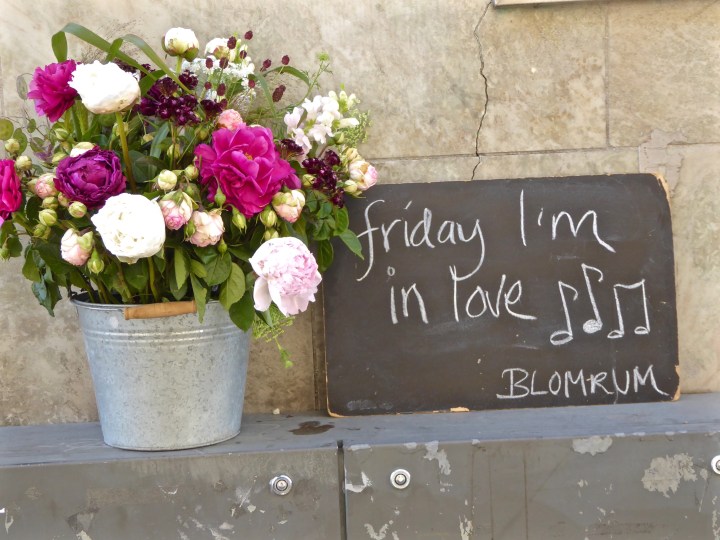 friday I'm
in love
BLOMRUM